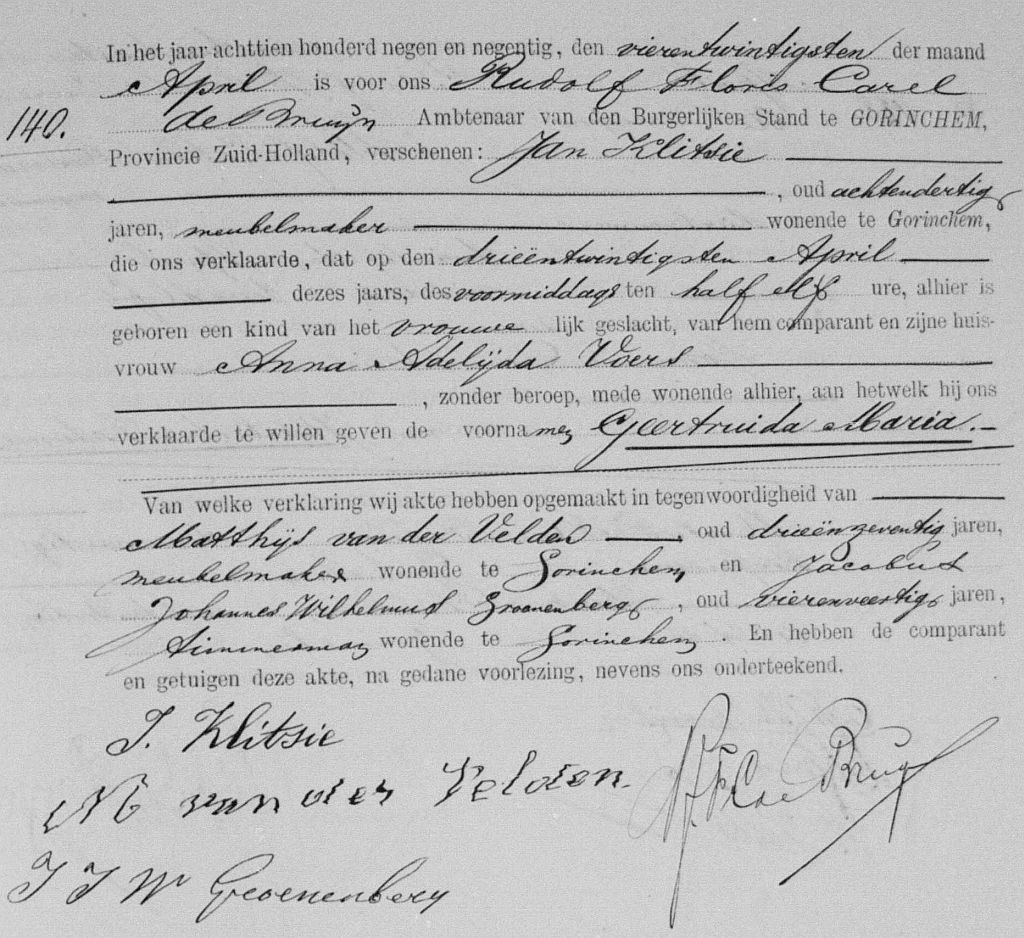 In het jaar achttien honderd negen en negentig, den vierentwintigsten der maand
April is voor ons Rudolf Floris Carel
140. de Bruijn Ambtenaar van den Burgerlijken Stand te GORINCHEM,
Provincie Zuid-Holland, verschenen: Jan Klitsie
, oud achtendertig
jaren, meubelmaker wonende te Gorinchem,
die ons verklaarde, dat op den drieëntwintigsten April
dezes jaars, des voormiddags ten half elf ure, alhier is
geboren een kind van het vrouwe lijk geslacht, van hem comparant en zijne huis-
vrouw Anna Adelijda Voers
, zonder beroep, mede wonende alhier, aan hetwelk hij ons
verklaarde te willen geven de voornamen Geertruida Maria.
Van welke verklaring wij akte hebben opgemaakt in tegenwoordigheid van
Matthijs van der Velden , oud drieënzeventig jaren,
meubelmaker wonende te Gorinchem en Jacobus
Johannes Wilhelmus Groenenberg , oud vierenveertig jaren,
timmerman wonende te Gorinchem . En hebben de comparant
en getuigen deze akte, na gedane voorlezing, nevens ons onderteekend.
J. Klitsie
M van der Velden.
R.F.C. de Bruijn
J J W Groenenberg